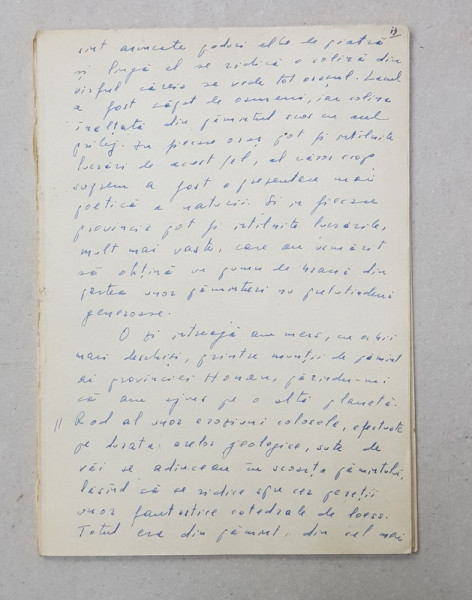 13
sînt aruncate poduri albe de piatră
și lîngă el se ridică o colină din
vîrful căreia se vede tot orașul. Lacul
a fost săpat de oameni, iar colina
înălțată din pămîntul scos cu acel
prilej. În fiecare oraș pot fi întîlnite
lucrări de acest fel, al căror scop
suprem a fost o prezentare mai
poetică a naturii. Și în fiecare
provincie pot fi întîlnite lucrările,
mult mai vaste, care au urmărit
să obțină un pumn de hrană din
partea unor pămînturi nu pretutindeni
generoase.
O zi întreagă am mers, cu ochii
mari deschiși, printre munții de pămînt
ai provinciei Honan, părîndu-mi
că am ajuns pe o altă planetă.
Rod al unor eroziuni colosale, efectuate
pe durata erelor geologice, sute de
văi se adînceau în scoarța pămîntului,
lăsînd să se ridice spre cer pereții
unor fantastice catedrale de loess.
Totul era din pămînt, din cel mai